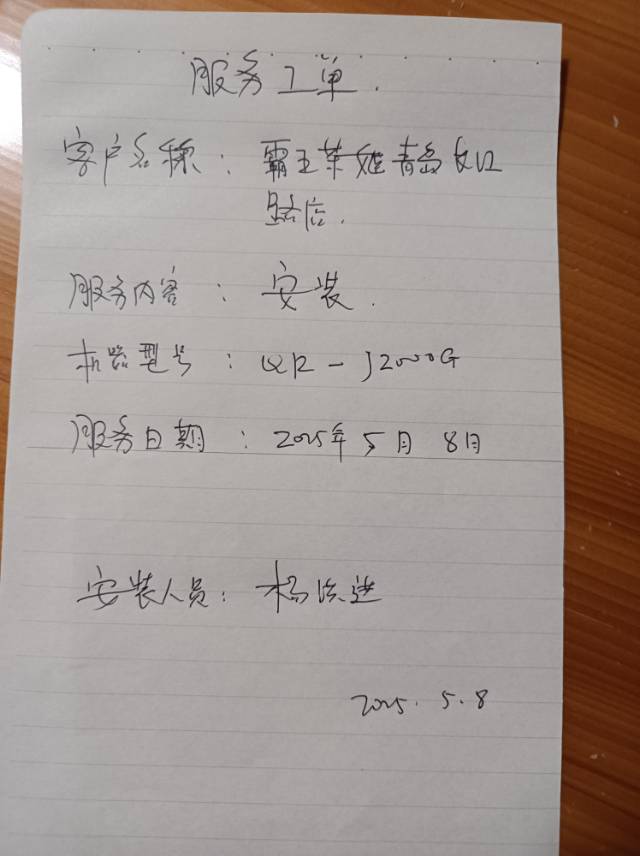 服务工单.
客户名称：霸王茶姬青岛女口
路店.
服务内容：安装.
机器型号：QR-J2000G
服务日期：2025年5月8日
安装人员：杨洪进
2025.5.8